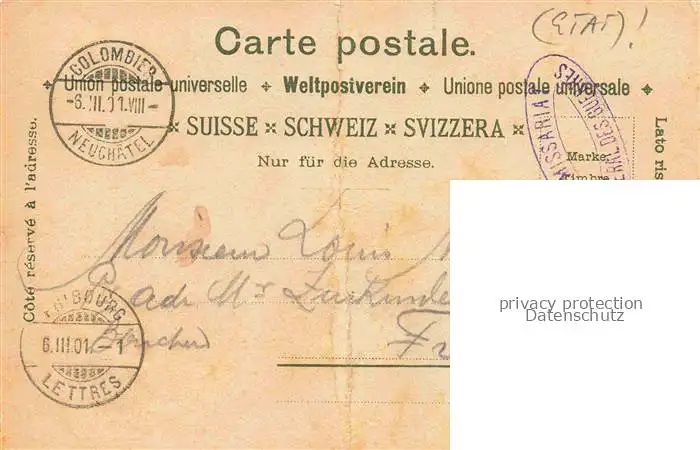 (ETAT)!
Carte postale.
Union postale universelle ✦ Weltpostverein ✦ Unione postale universale
SUISSE × SCHWEIZ × SVIZZERA
Nur für die Adresse.
COLOMBIER
-6.III.01.VIII-
NEUCHÂTEL
MISSARIAT
DES GUERRES
Marke.
Timbre
Côté réservé à l'adresse.
Lato ris
Monsieur Louis
adr Mr
Boucher
FRIBOURG
6.III.01.-1
LETTRES
privacy protection
Datenschutz